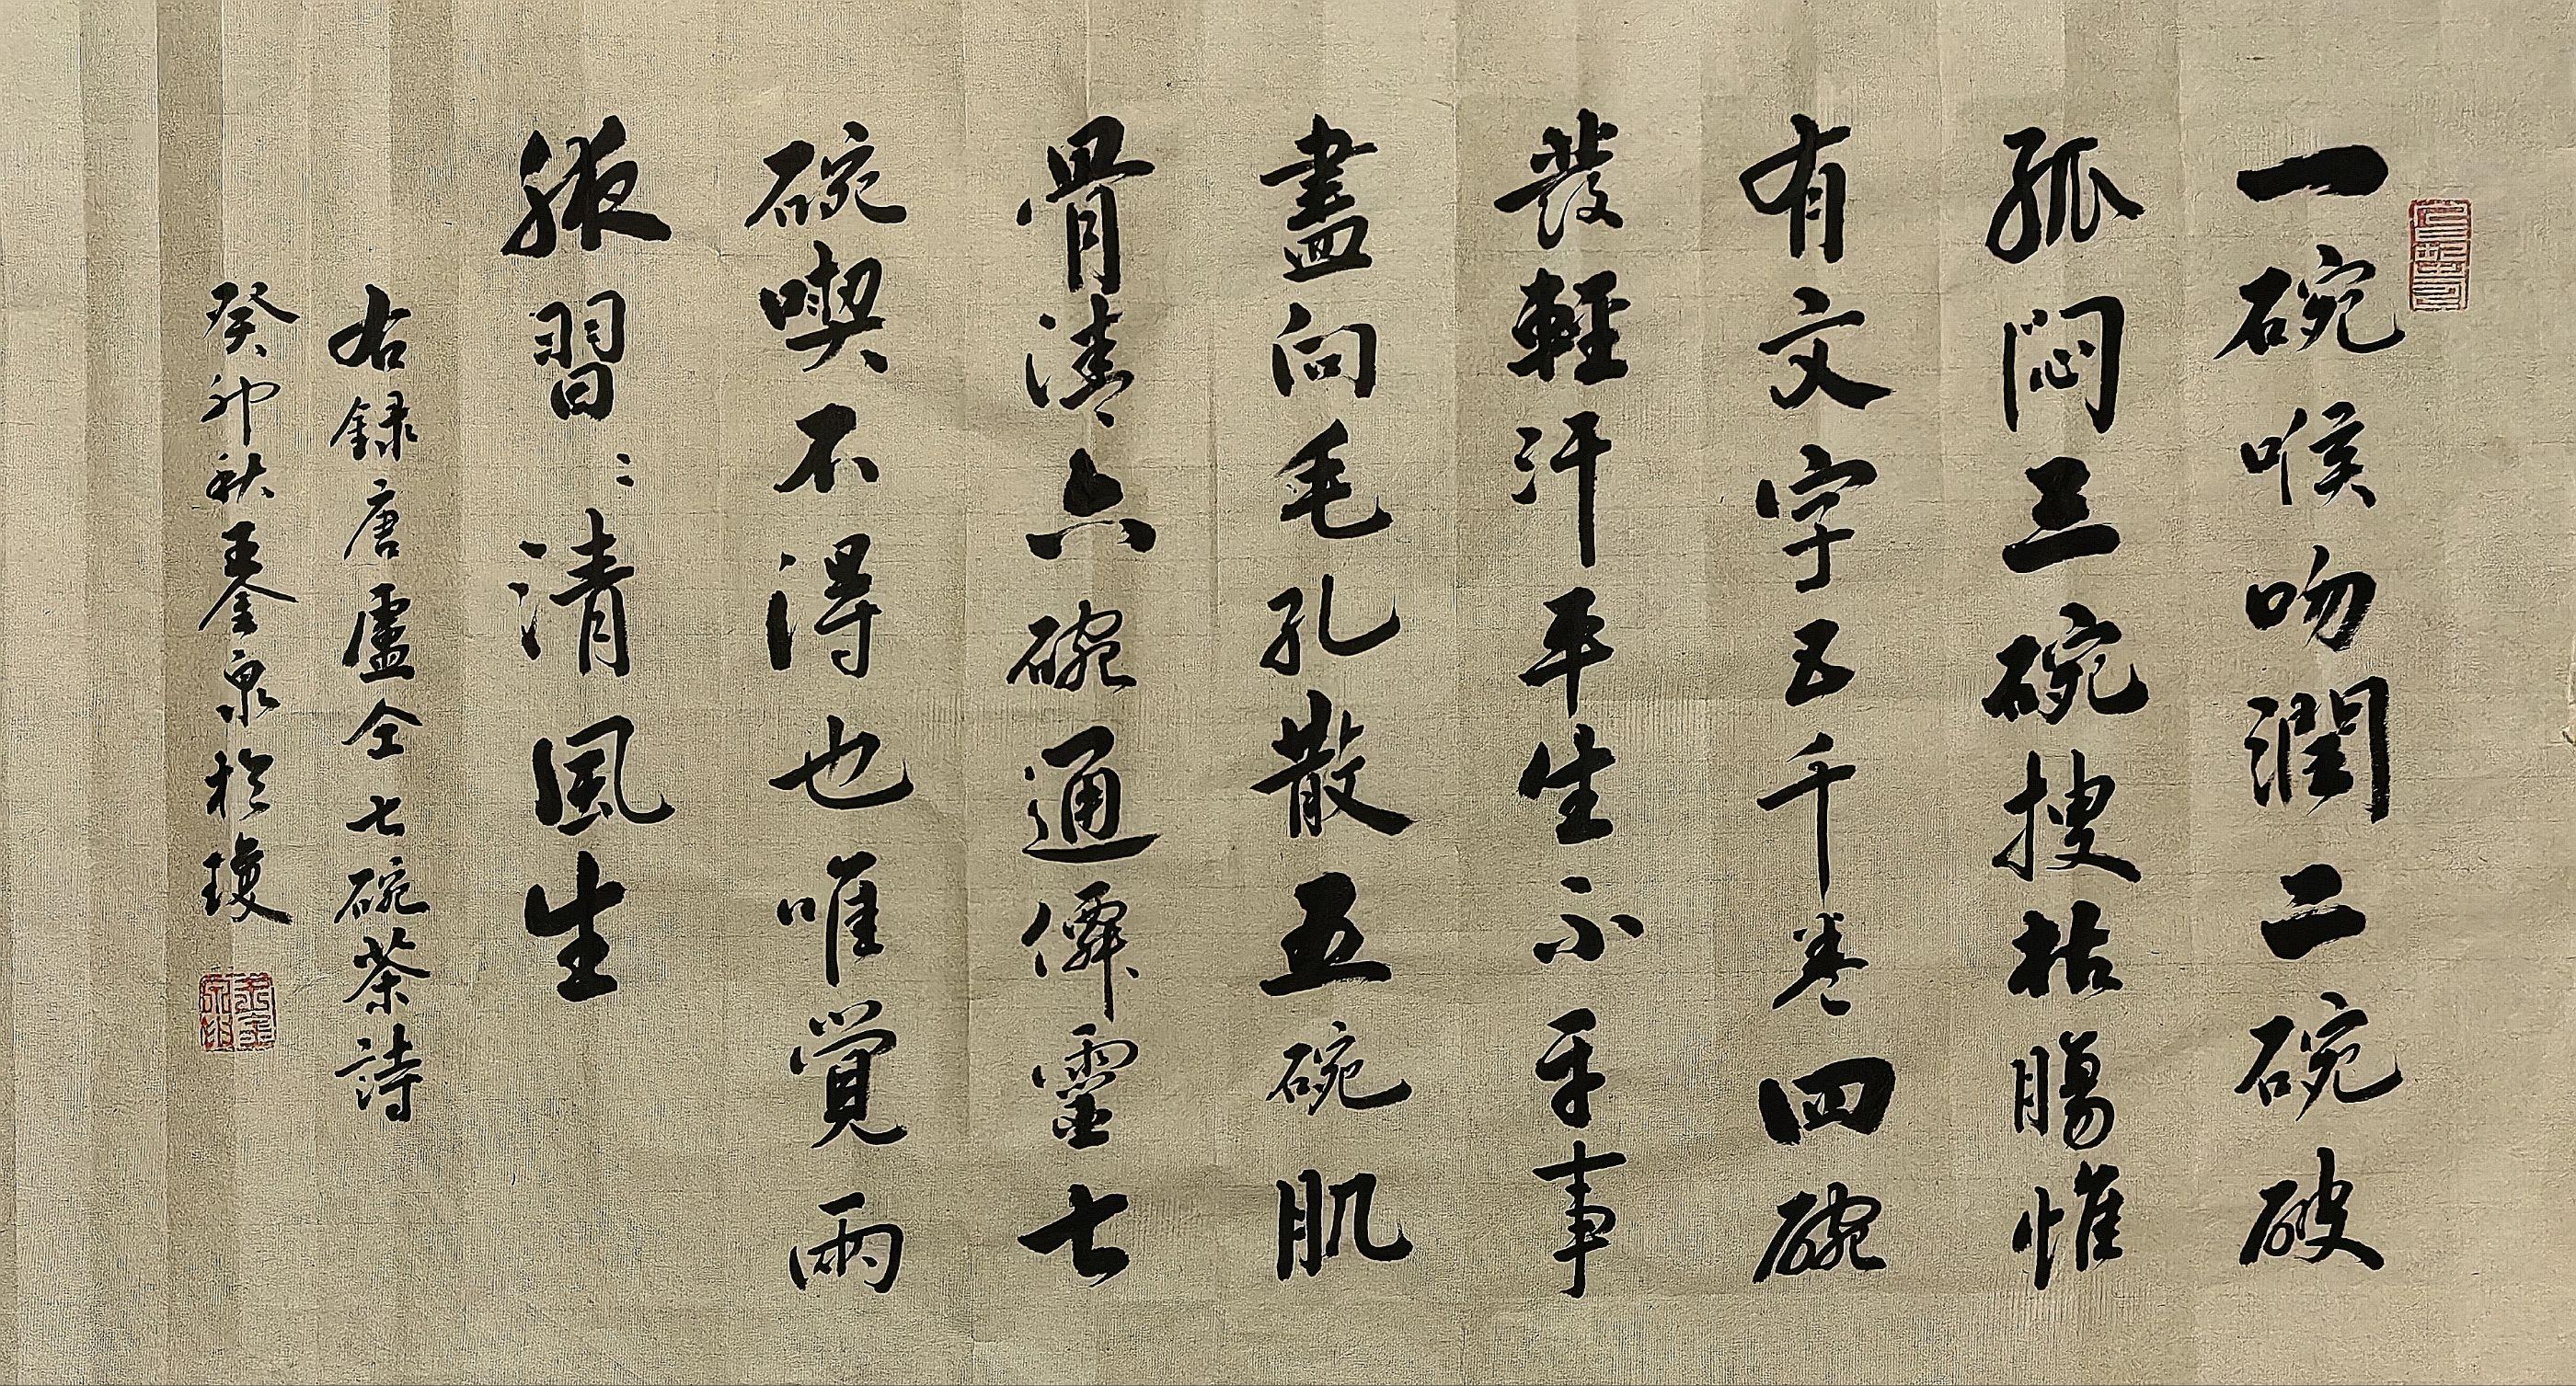 一碗喉吻潤二碗破
孤悶三碗搜枯腸惟
有文字五千卷四碗
發輕汗平生不平事
盡向毛孔散五碗肌
骨清六碗通僊靈七
碗喫不得也唯覺兩
腋習〻清風生
右錄唐盧仝七碗茶詩
癸卯秋王奎泉於瓊